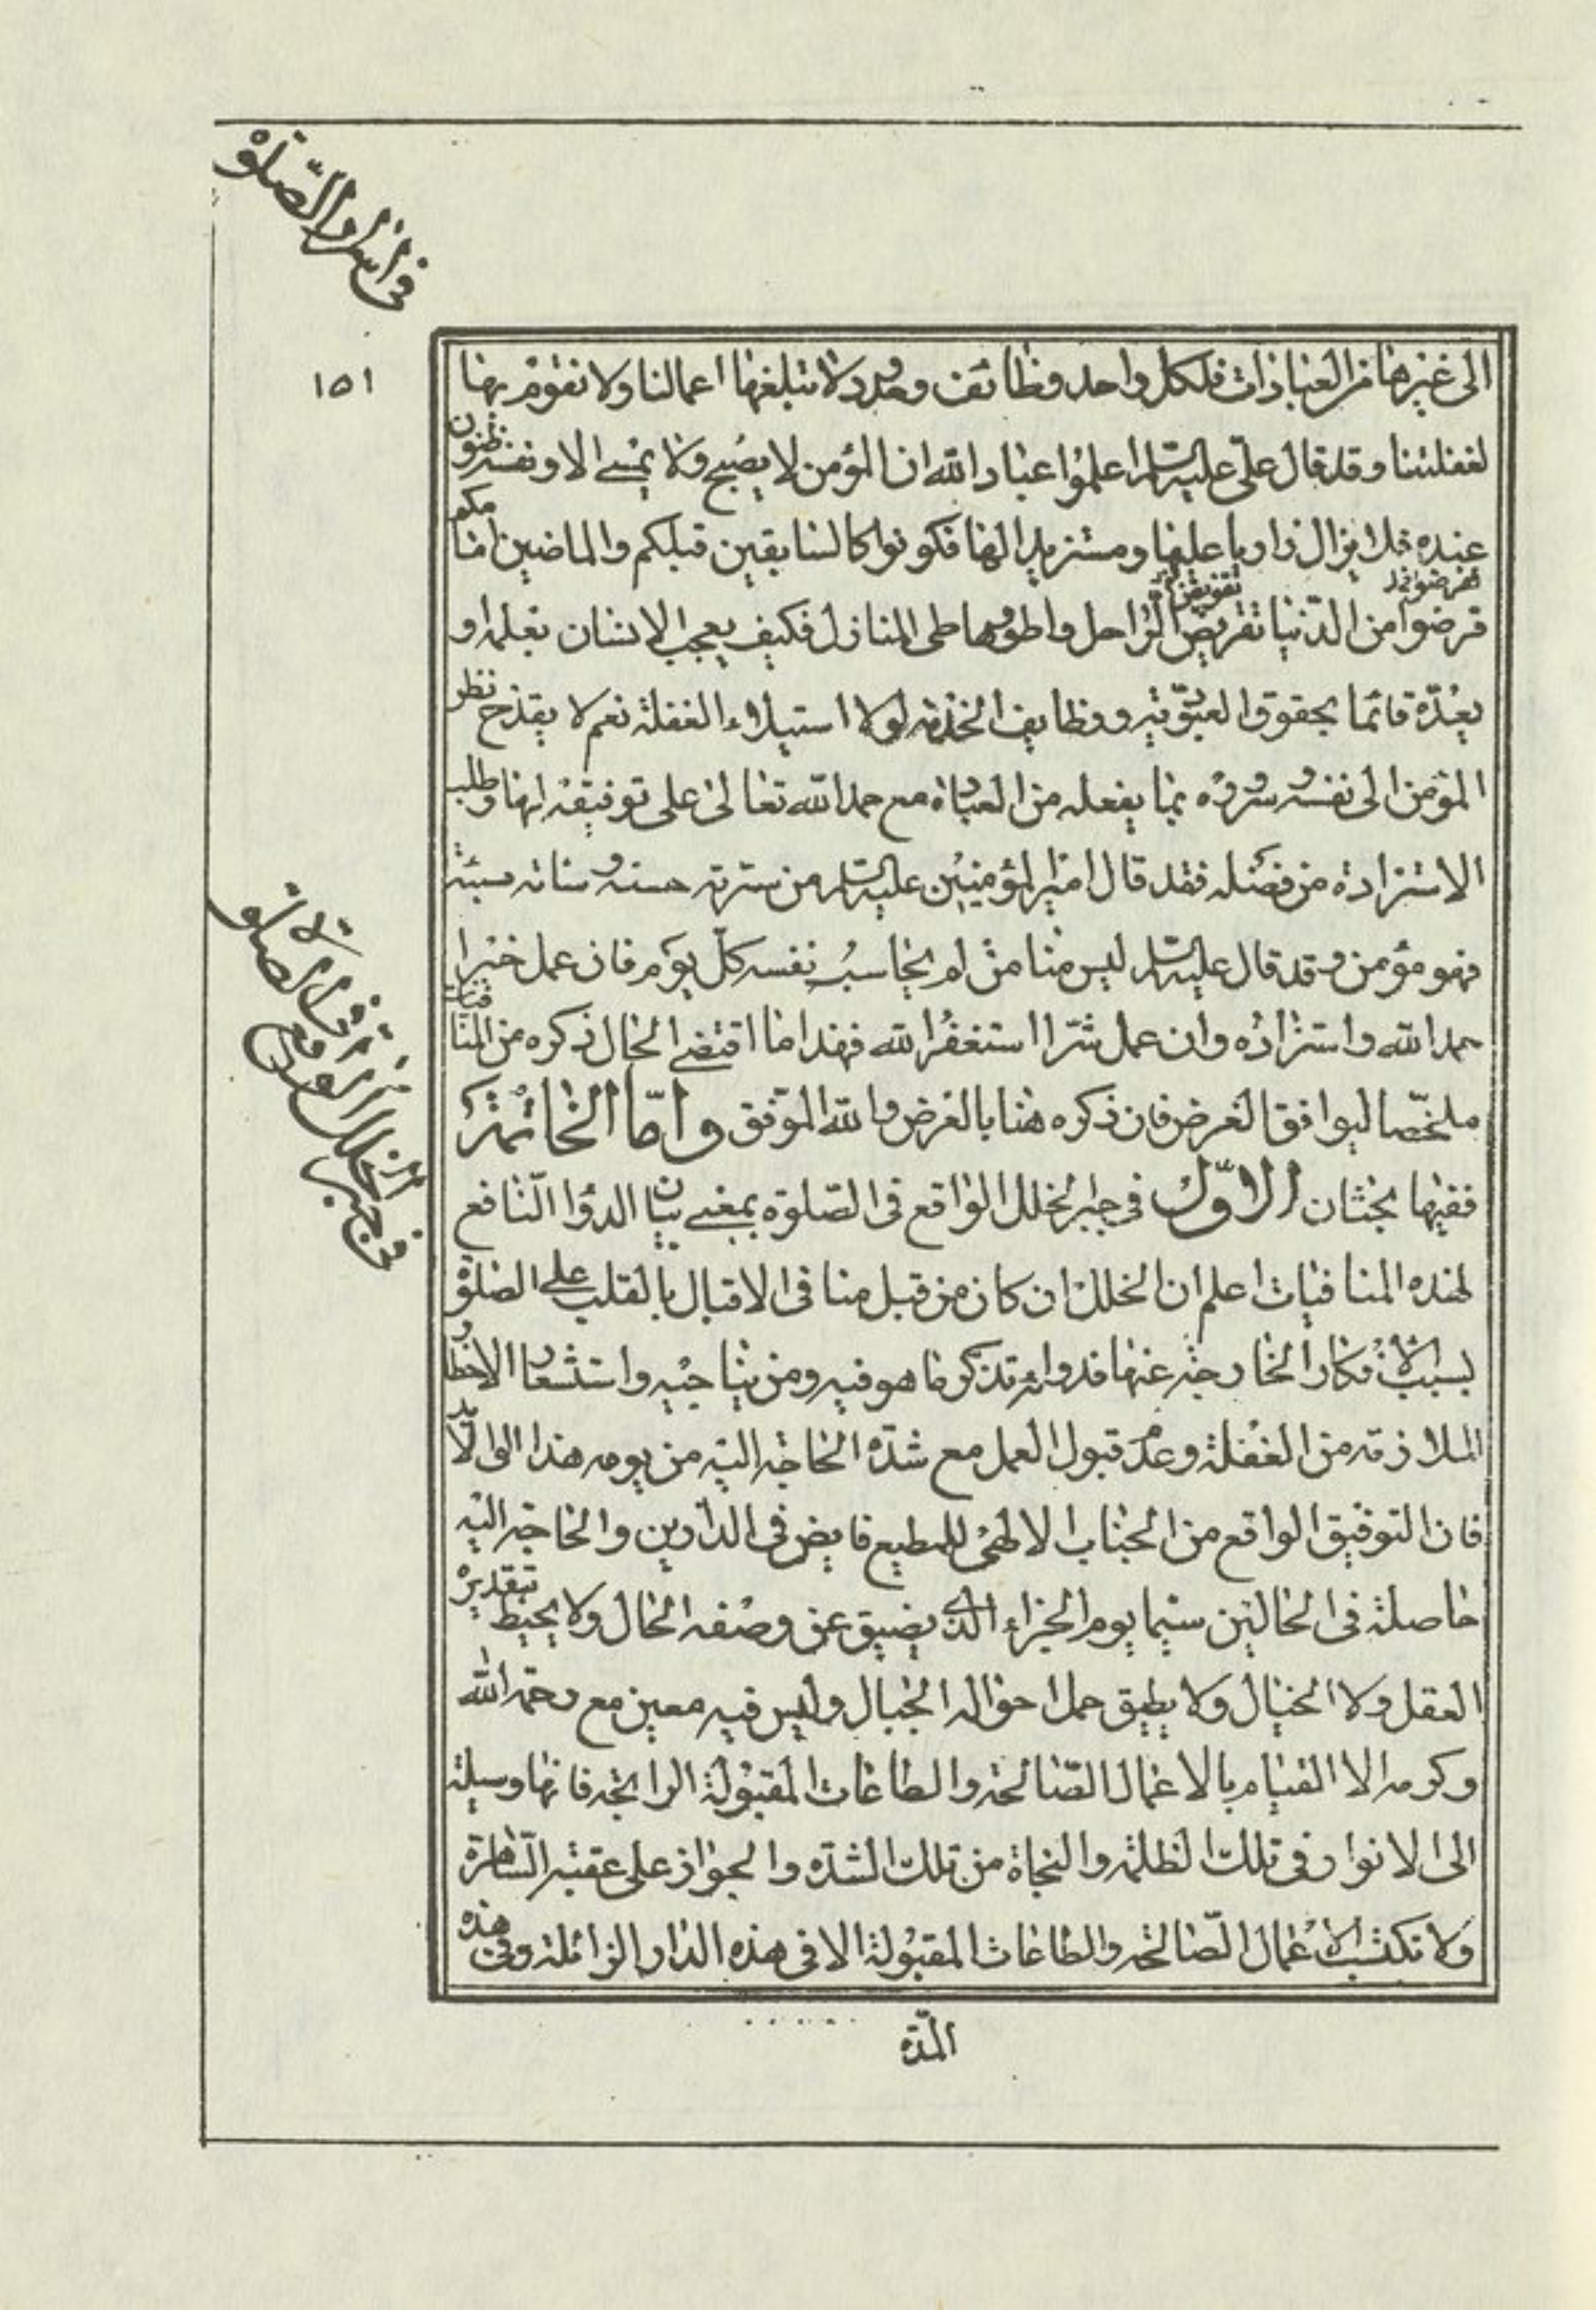 في اسرار الصلوة
١٥١
الى غيرها من العبادات فلكل واحد وظائف وحدود لا تبلغها اعمالنا ولا نقوم بها
لغفلتنا وقد قال علىّ عليه السلم اعلموا عباد الله ان المؤمن لا يصبح ولا يمسى الا ونفسه ظنون
عنده فلا يزال زاريا عليها ومستزيدا لها فكونوا كالسابقين قبلكم والماضين امامكم
قرضوا من الدنيا تقريض الراحل واطووها طى المنازل فكيف يعجب الانسان بعلمه او
يعدّه قائما بحقوق العبوديّة ووظايف الخدمة لولا استيلاء الغفلة نعم لا يقدح نظر
المؤمن الى نفسه وسروره بما يفعله من العبادة مع حمد الله تعالى على توفيقه لها وطلب
الاستزادة من فضله فقد قال امير المؤمنين عليه السلم من سرته حسنته وسائته سيئته
فهو مؤمن وقد قال عليه السلم ليس منا من لم يحاسب نفسه كلّ يوم فان عمل خيرا
حمد الله واستزاده وان عمل شرّا استغفر الله فهذا ما اقتضى الحال ذكره من المنافيات
ملخّصا ليوافق الغرض فان ذكره هنا بالعرض والله الموّفق وامّا الخاتمة
ففيها بحثان الاوّل فى جبر الخلل الواقع فى الصّلوة بمعنى بيان الدوا النّافع
لهذه المنافيات اعلم ان الخلل ان كان من قبل منافى الاقبال بالقلب على الصلوة
بسبب الافكار الخارجة عنها فدواؤه تذكر ما هو فيه ومن يناجيه واستشعار الاخطار
الملازمة من الغفلة وعدم قبول العمل مع شدّة الحاجة اليه من يومه هذا الى الابد
فان التوفيق الواقع من الجناب الالهى للمطيع فايض فى الدارين والحاجة اليه
حاصلة فى الحالين سيما يوم الجزاء الذى يضيق عن وصفه الحال ولا يحيط بتقديره
العقل ولا الخيال ولا يطيق حمل احواله الجبال وليس فيه معين مع رحمة الله
وكرمه الا القيام بالاعمال الصّالحة والطاعات المقبولة الرابحة فانها وسيلة
الى الانوار فى تلك الظلمة والنجاة من تلك الشدّة والجواز على عقبة السّاهرة
ولا تكتسب الاعمال الصّالحة والطاعات المقبولة الا فى هذه الدار الزائلة وفى هذه
المدّة
في جبر الخلل الواقع في الصلوة